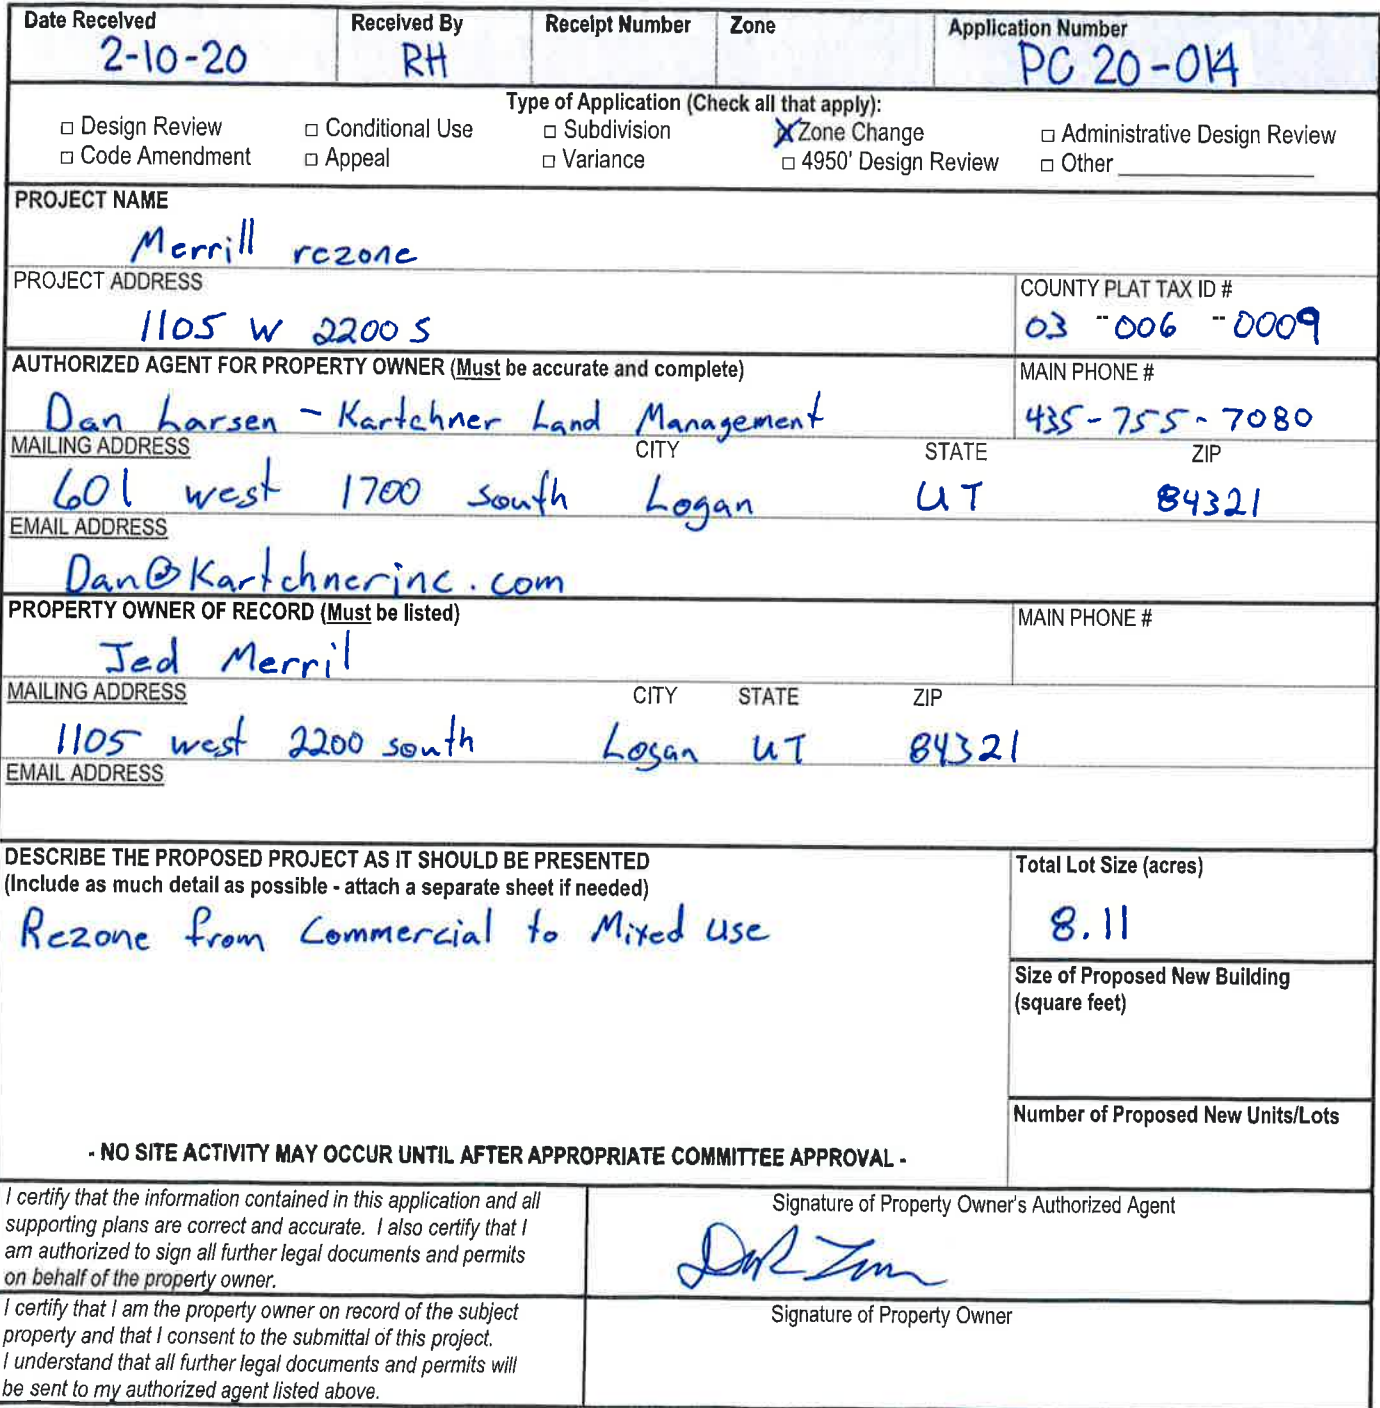 Date Received Received By Receipt Number Zone Application Number
2-10-20 RH PC 20-014
Type of Application (Check all that apply):
□ Design Review □ Conditional Use □ Subdivision X Zone Change □ Administrative Design Review
□ Code Amendment □ Appeal □ Variance □ 4950' Design Review □ Other ____
PROJECT NAME
Merrill rezone
PROJECT ADDRESS COUNTY PLAT TAX ID #
1105 W 2200 S 03 -006 -0009
AUTHORIZED AGENT FOR PROPERTY OWNER (Must be accurate and complete) MAIN PHONE #
Dan Larsen - Kartchner Land Management 435-755-7080
MAILING ADDRESS CITY STATE ZIP
601 west 1700 south Logan UT 84321
EMAIL ADDRESS
Dan@Kartchnerinc.com
PROPERTY OWNER OF RECORD (Must be listed) MAIN PHONE #
Jed Merril
MAILING ADDRESS CITY STATE ZIP
1105 west 2200 south Logan UT 84321
EMAIL ADDRESS
DESCRIBE THE PROPOSED PROJECT AS IT SHOULD BE PRESENTED
(Include as much detail as possible - attach a separate sheet if needed)
Rezone from Commercial to Mixed Use
Total Lot Size (acres)
8.11
Size of Proposed New Building
(square feet)
Number of Proposed New Units/Lots
- NO SITE ACTIVITY MAY OCCUR UNTIL AFTER APPROPRIATE COMMITTEE APPROVAL -
I certify that the information contained in this application and all
supporting plans are correct and accurate. I also certify that I
am authorized to sign all further legal documents and permits
on behalf of the property owner.
Signature of Property Owner's Authorized Agent
I certify that I am the property owner on record of the subject
property and that I consent to the submittal of this project.
I understand that all further legal documents and permits will
be sent to my authorized agent listed above.
Signature of Property Owner